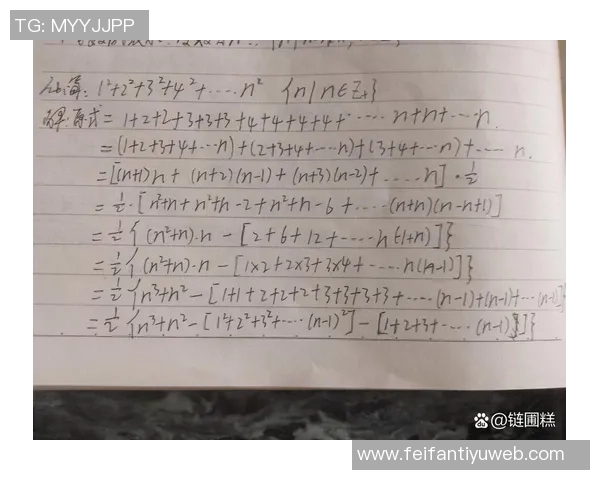 TG: MYYJJPP
计算: 1²+2²+3²+4²+····n² {n|n∈Z₊}
解:原式= 1+2+2+3+3+3+4+4+4+4+·····n+n+···n.
=(1+2+3+4+···n)+(2+3+4+···n)+(3+4+···n)+···· n.
=[(n+1)n + (n+2)(n-1)+(n+3)(n-2)+·····n]·½
=½·[n²+n+n²+n-2+n²+n-6+····(n+n)(n-n+1)]
=½{(n²+n)·n-[2+6+12+·····n(-1+n)]}
=½{(n²+n)·n-[1×2+2×3+3×4+·····n(n-1)]}
=½{n³+n²-[1+1+2+2+2+2+3+3+3+3+····(n-1)+(n-1)+···(n-1)]}
=½{n³+n²-[1²+2²+3²+····(n-1)²]-[1+2+3+····(n-1)]}
@链圃糕
www.feifantiyuweb.com